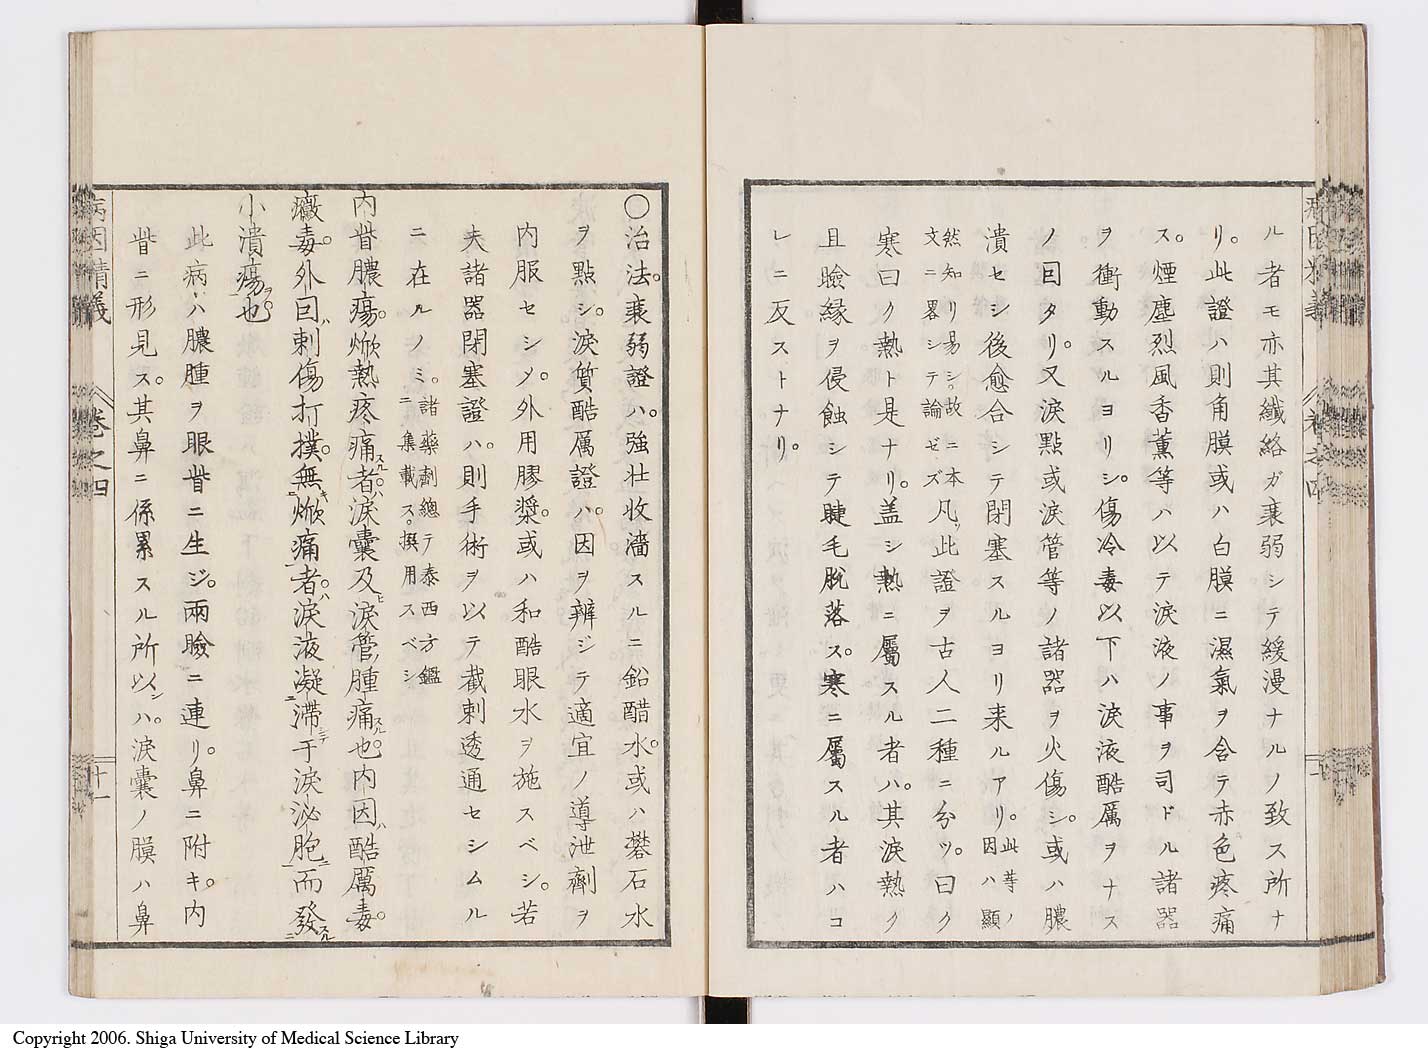 ル者モ亦其纎絡ガ衰弱シテ緩漫ナルノ致ス所ナ
リ。此證ハ則角膜或ハ白膜ニ濕氣ヲ含テ赤色疼痛
ス。煙塵烈風香薫等ハ以テ淚液ノ事ヲ司ドル諸器
ヲ衝動スルヨリシ。傷冷毒以下ハ淚液酷厲ヲナス
ノ因タリ。又淚點或淚管等ノ諸器ヲ火傷シ。或ハ膿
潰セシ後愈合シテ閉塞スルヨリ来ルアリ。此等ノ因ハ顯
然知リ易シ。故ニ本文ニ畧シテ論ゼズ凡ソ此證ヲ古人二種ニ分ツ。曰ク
寒曰ク熱ト是ナリ。盖シ熱ニ屬スル者ハ。其淚熱ク
且瞼縁ヲ侵蝕シテ睫毛脫落ス。寒ニ屬スル者ハコ
レニ反ストナリ。
病因精義 卷之四
〇治法。衰弱證ハ。強壮收濇スルニ鉛醋水。或ハ礬石水
ヲ點シ。淚質酷厲證ハ。因ヲ辨ジテ適宜ノ導泄劑ヲ
内服セシメ。外用膠漿。或ハ和酷眼水ヲ施スベシ。若
夫諸器閉塞證ハ。則手術ヲ以テ截刺透通セシムル
ニ在ルノミ。諸藥劑總テ泰西方鑑ニ集載ス。撰用スベシ
内眥膿瘍。焮熱疼痛スル者ハ。淚囊及ヒ淚管ノ腫痛スル也。内因ハ酷厲毒。
黴毒。外因ハ刺傷打撲。無キ焮痛者ハ。淚液凝滯ニシテ于淚泌胞ニ而發スルニ
小潰瘍ヲ也
此病ハ膿腫ヲ眼眥ニ生ジ。兩瞼ニ連リ。鼻ニ附キ。内
眥ニ形見ス。其鼻ニ係累スル所以ンハ。淚囊ノ膜ハ鼻
病因精義 卷之四 十一